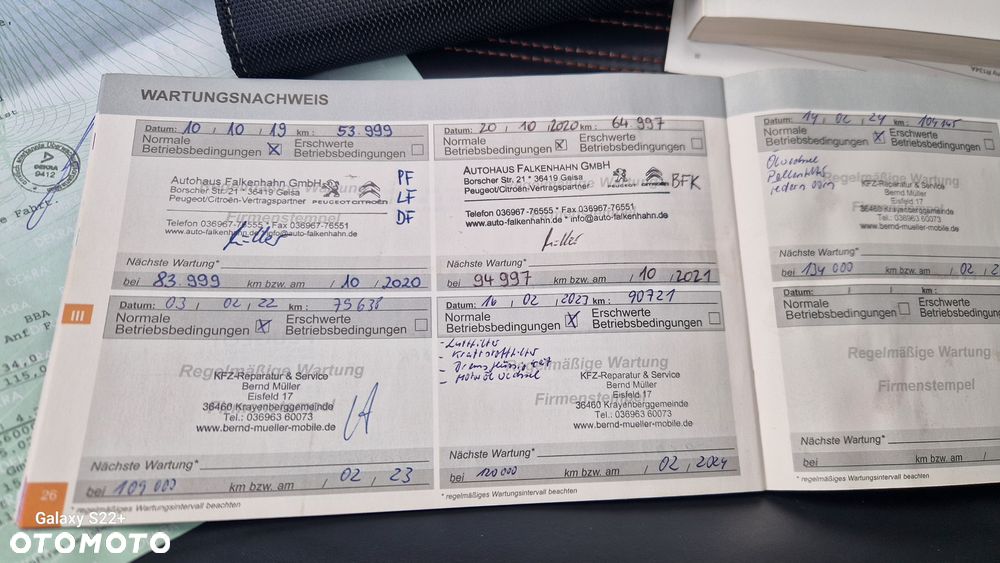 WARTUNGSNACHWEIS
Datum: 10 / 10 / 19 km: 53.999
Normale Betriebsbedingungen X
Erschwerte Betriebsbedingungen
Autohaus Falkenhahn GmbH
Borscher Str. 21 * 36419 Geisa
Peugeot/Citroën-Vertragspartner
PEUGEOT CITROËN
Firmenstempel
Telefon 036967-76555 * Fax 036967-76551
www.auto-falkenhahn.de info@auto-falkenhahn.de
PF
LF
DF
Nächste Wartung*
bei 83.999 km bzw. am / 10 / 2020
Datum: 20 / 10 / 2020 km: 64.997
Normale Betriebsbedingungen X
Erschwerte Betriebsbedingungen
AUTOHAUS FALKENHAHN GMBH
Borscher Str. 21 * 36419 Geisa
Peugeot/Citroën-Vertragspartner
PEUGEOT CITROËN
BFK
Telefon 036967-76555 * Fax 036967-76551
www.auto-falkenhahn.de * info@auto-falkenhahn.de
Nächste Wartung*
bei 94.997 km bzw. am / 10 / 2021
III
Datum: 03 / 02 / 22 km: 79638
Normale Betriebsbedingungen X
Erschwerte Betriebsbedingungen
Regelmäßige Wartung
KFZ-Reparatur & Service
Bernd Müller
Eisfeld 17
36460 Krayenberggemeinde
Tel.: 036963 60073
www.bernd-mueller-mobile.de
Nächste Wartung*
bei 109 000 km bzw. am / 02 / 23
Datum: 16 / 02 / 2023 km: 90721
Normale Betriebsbedingungen X
Erschwerte Betriebsbedingungen
- Luftfilter
- Kraftstofffilter
- Bremsflüssigkeit
- Motoröl wechsel
Regelmäßige Wartung
Firmenstempel
KFZ-Reparatur & Service
Bernd Müller
Eisfeld 17
36460 Krayenberggemeinde
Tel.: 036963 60073
www.bernd-mueller-mobile.de
Nächste Wartung*
bei 120 000 km bzw. am / 02 / 2024
26
* regelmäßiges Wartungsintervall beachten
* regelmäßiges Wartungsintervall beachten
14 / 02 / 24 km: 104145
Datum:
Normale Betriebsbedingungen X
Erschwerte Betriebsbedingungen
Ölwechsel
Pollenfilter
Regelmäßige Wartung
KFZ-Reparatur & Service
Eisfeld 17
36460 Krayenberggemeinde
Tel.: 036963 60073
www.bernd-mueller-mobile.de
Nächste Wartung*
bei 134 000 km bzw. am / 02 / 2
Datum: / / km:
Normale Betriebsbedingungen
Erschwerte Betriebsbedingungen
Regelmäßige Wartung
Firmenstempel
Nächste Wartung*
bei km bzw. am /
* regelmäßiges Wartungsintervall beachten
DEKRA
9412
BBA
Galaxy S22+
OTOMOTO